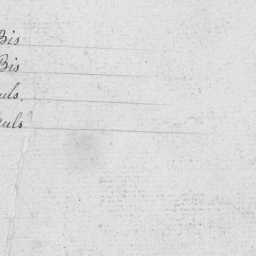 Bis
Bis
uls.
uls